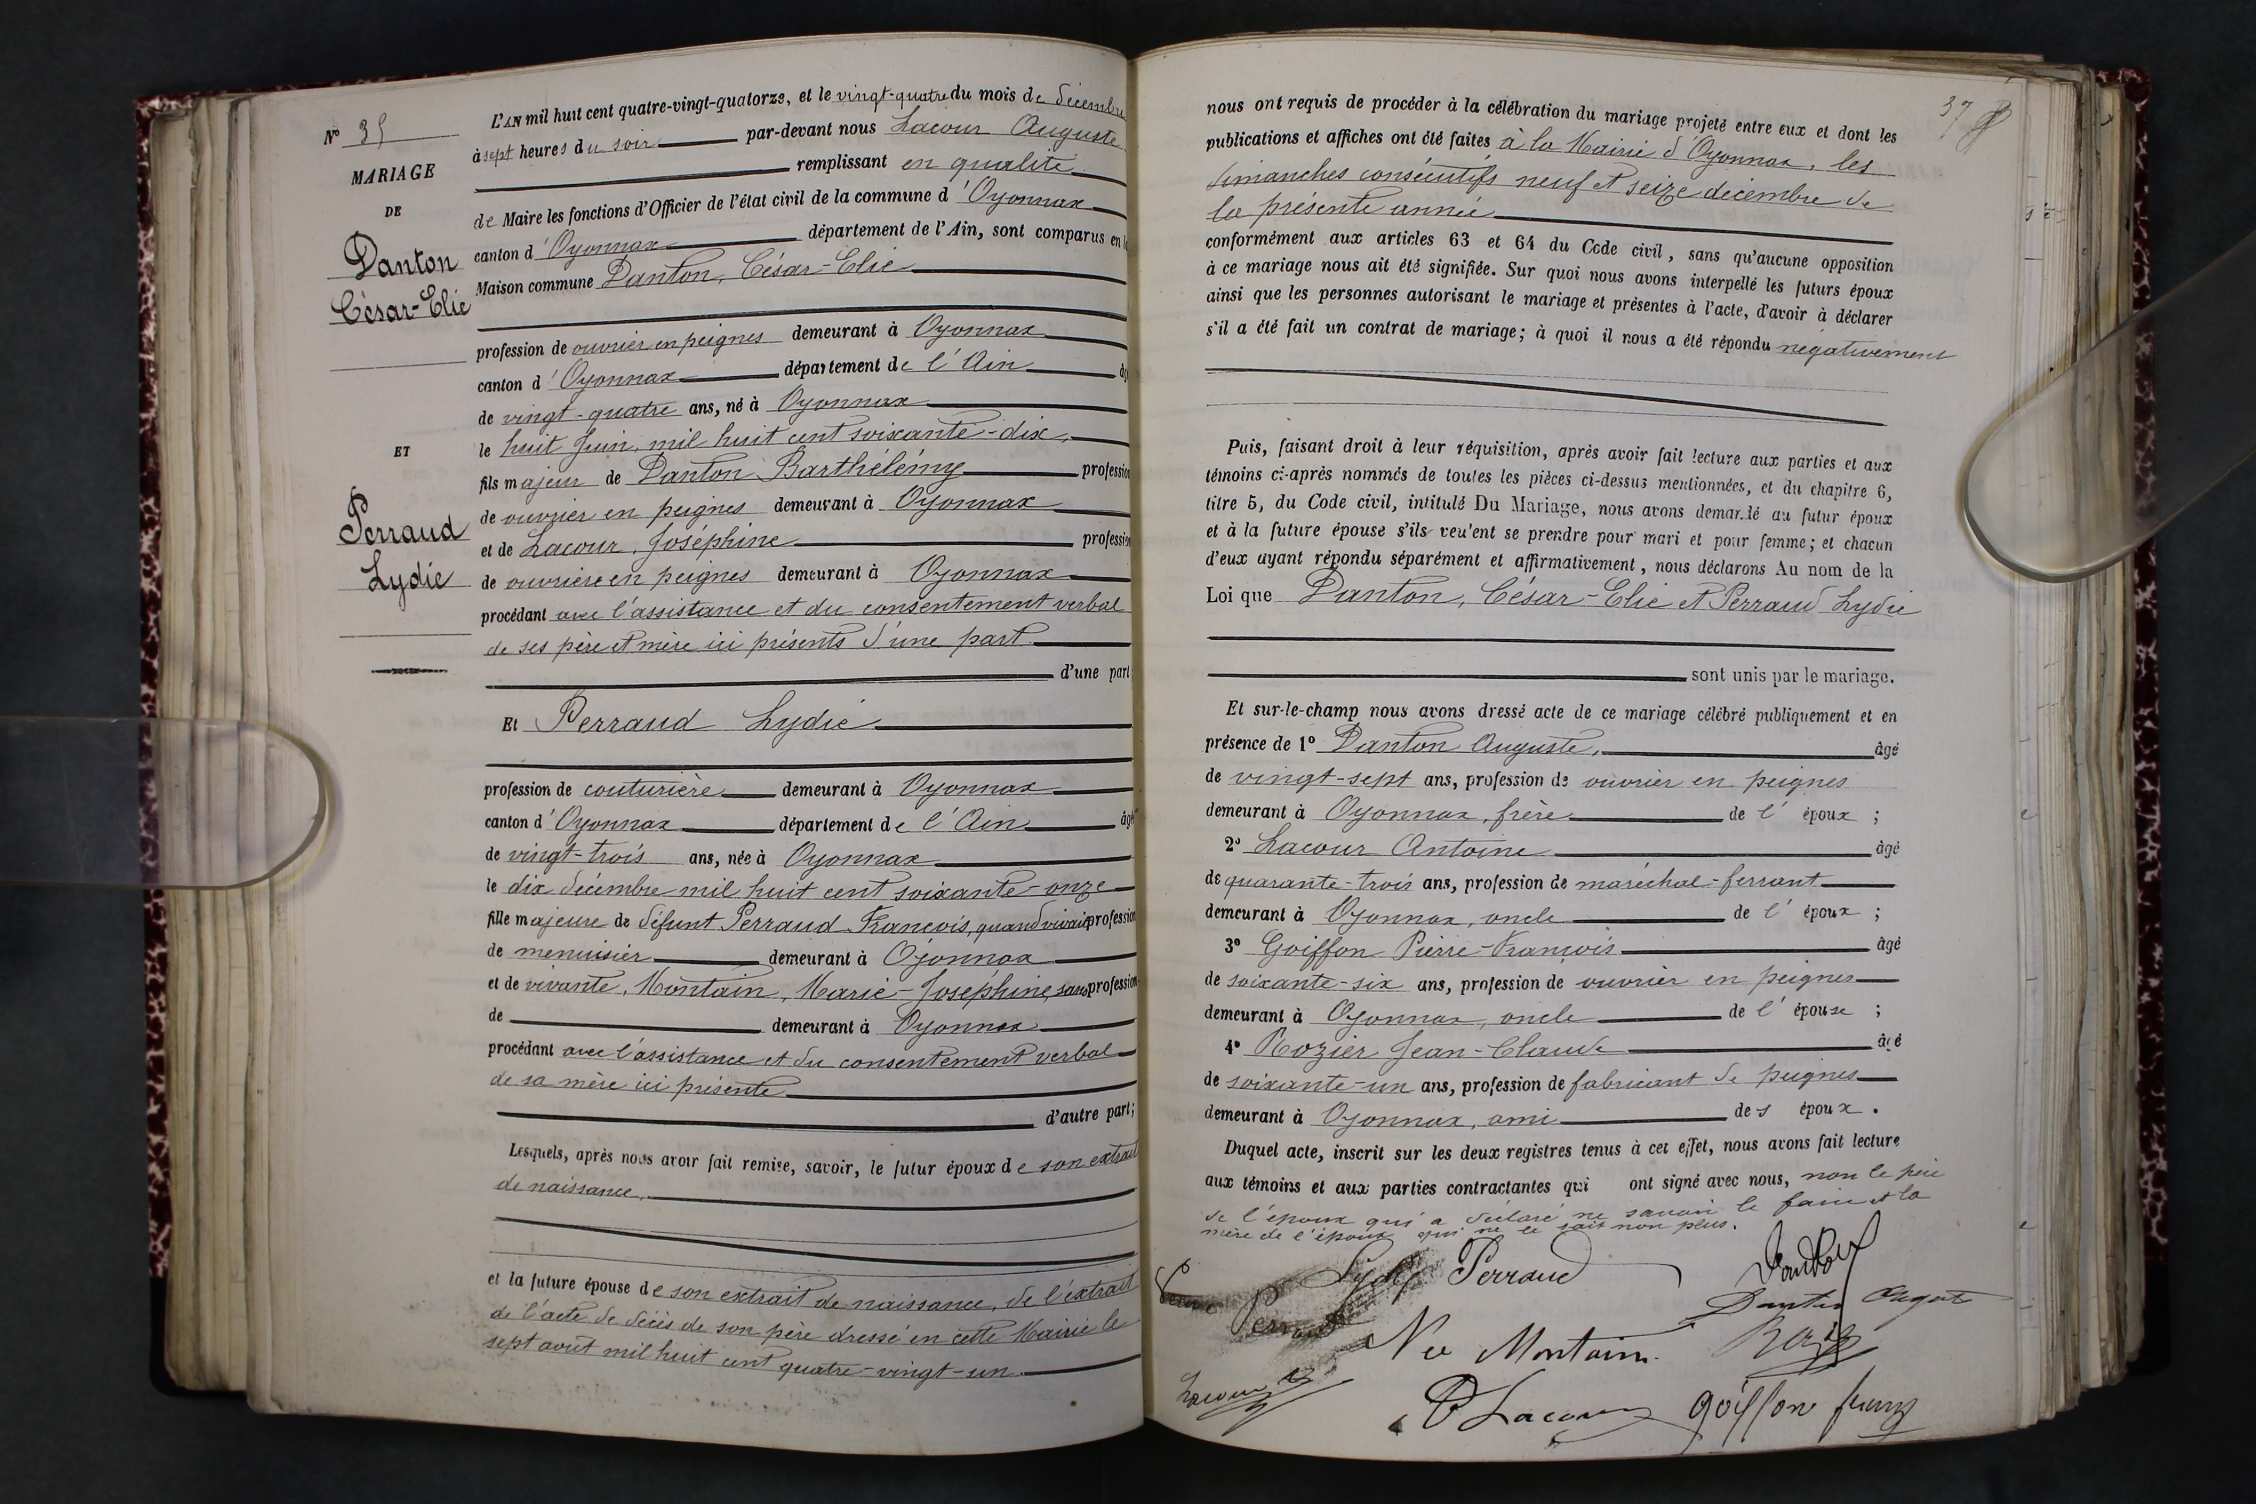 N° 35
MARIAGE
DE
Danton
César-Elie
ET
Perraud
Lydie
L'AN mil huit cent quatre-vingt-quatorze, et le vingt-quatre du mois de décembre
à sept heures du soir par-devant nous Lacour Auguste
remplissant en qualité
de Maire les fonctions d'Officier de l'état civil de la commune d'Oyonnax
canton d'Oyonnax département de l'Ain, sont comparus en la
Maison commune Danton, César-Elie
profession de ouvrier en peignes demeurant à Oyonnax
canton d'Oyonnax département de l'Ain âgé
de vingt-quatre ans, né à Oyonnax
le huit Juin, mil huit cent soixante-dix,
fils majeur de Danton Barthélémy profession
de ouvrier en peignes demeurant à Oyonnax
et de Lacour, Joséphine profession
de ouvrière en peignes demeurant à Oyonnax
procédant avec l'assistance et du consentement verbal
de ses père et mère ici présents d'une part
d'une part,
Et Perraud Lydie
profession de couturière demeurant à Oyonnax
canton d'Oyonnax département de l'Ain âgé
de vingt-trois ans, née à Oyonnax
le dix décembre mil huit cent soixante-onze
fille majeure de défunt Perraud François, quand vivait profession
de menuisier demeurant à Oyonnax
et de vivante, Montain, Marie-Joséphine, sans profession
de demeurant à Oyonnax
procédant avec l'assistance et du consentement verbal
de sa mère ici présente
d'autre part;
Lesquels, après nous avoir fait remise, savoir, le futur époux de son extrait
de naissance,
et la future épouse de son extrait de naissance, de l'extrait
de l'acte de décès de son père dressé en cette Mairie le
sept août mil huit cent quatre-vingt-un
37
nous ont requis de procéder à la célébration du mariage projeté entre eux et dont les
publications et affiches ont été faites à la Mairie d'Oyonnax, les
dimanches consécutifs neuf et seize décembre de
la présente année
conformément aux articles 63 et 64 du Code civil, sans qu'aucune opposition
à ce mariage nous ait été signifiée. Sur quoi nous avons interpellé les futurs époux
ainsi que les personnes autorisant le mariage et présentes à l'acte, d'avoir à déclarer
s'il a été fait un contrat de mariage; à quoi il nous a été répondu négativement
Puis, faisant droit à leur réquisition, après avoir fait lecture aux parties et aux
témoins ci-après nommés de toutes les pièces ci-dessus mentionnées, et du chapitre 6,
titre 5, du Code civil, intitulé Du Mariage, nous avons demandé au futur époux
et à la future épouse s'ils veulent se prendre pour mari et pour femme; et chacun
d'eux ayant répondu séparément et affirmativement, nous déclarons Au nom de la
Loi que Danton, César-Elie et Perraud Lydie
sont unis par le mariage.
Et sur-le-champ nous avons dressé acte de ce mariage célébré publiquement et en
présence de 1° Danton Auguste, âgé
de vingt-sept ans, profession de ouvrier en peignes
demeurant à Oyonnax, frère de l'époux ;
2° Lacour Antoine âgé
de quarante-trois ans, profession de maréchal-ferrant
demeurant à Oyonnax, oncle de l'époux ;
3° Goiffon Pierre-François âgé
de soixante-six ans, profession de ouvrier en peignes
demeurant à Oyonnax, oncle de l'épouse ;
4° Rozier Jean-Claude âgé
de soixante-un ans, profession de fabricant de peignes
demeurant à Oyonnax, ami des époux.
Duquel acte, inscrit sur les deux registres tenus à cet effet, nous avons fait lecture
aux témoins et aux parties contractantes qui ont signé avec nous, non le père
de l'époux qui a déclaré ne savoir le faire et la
mère de l'époux qui ne le sait non plus.
Lydie Perraud
Veuve Perraud
Danton
Née Montain
Rozier
Lacour
Lacour
goiffon